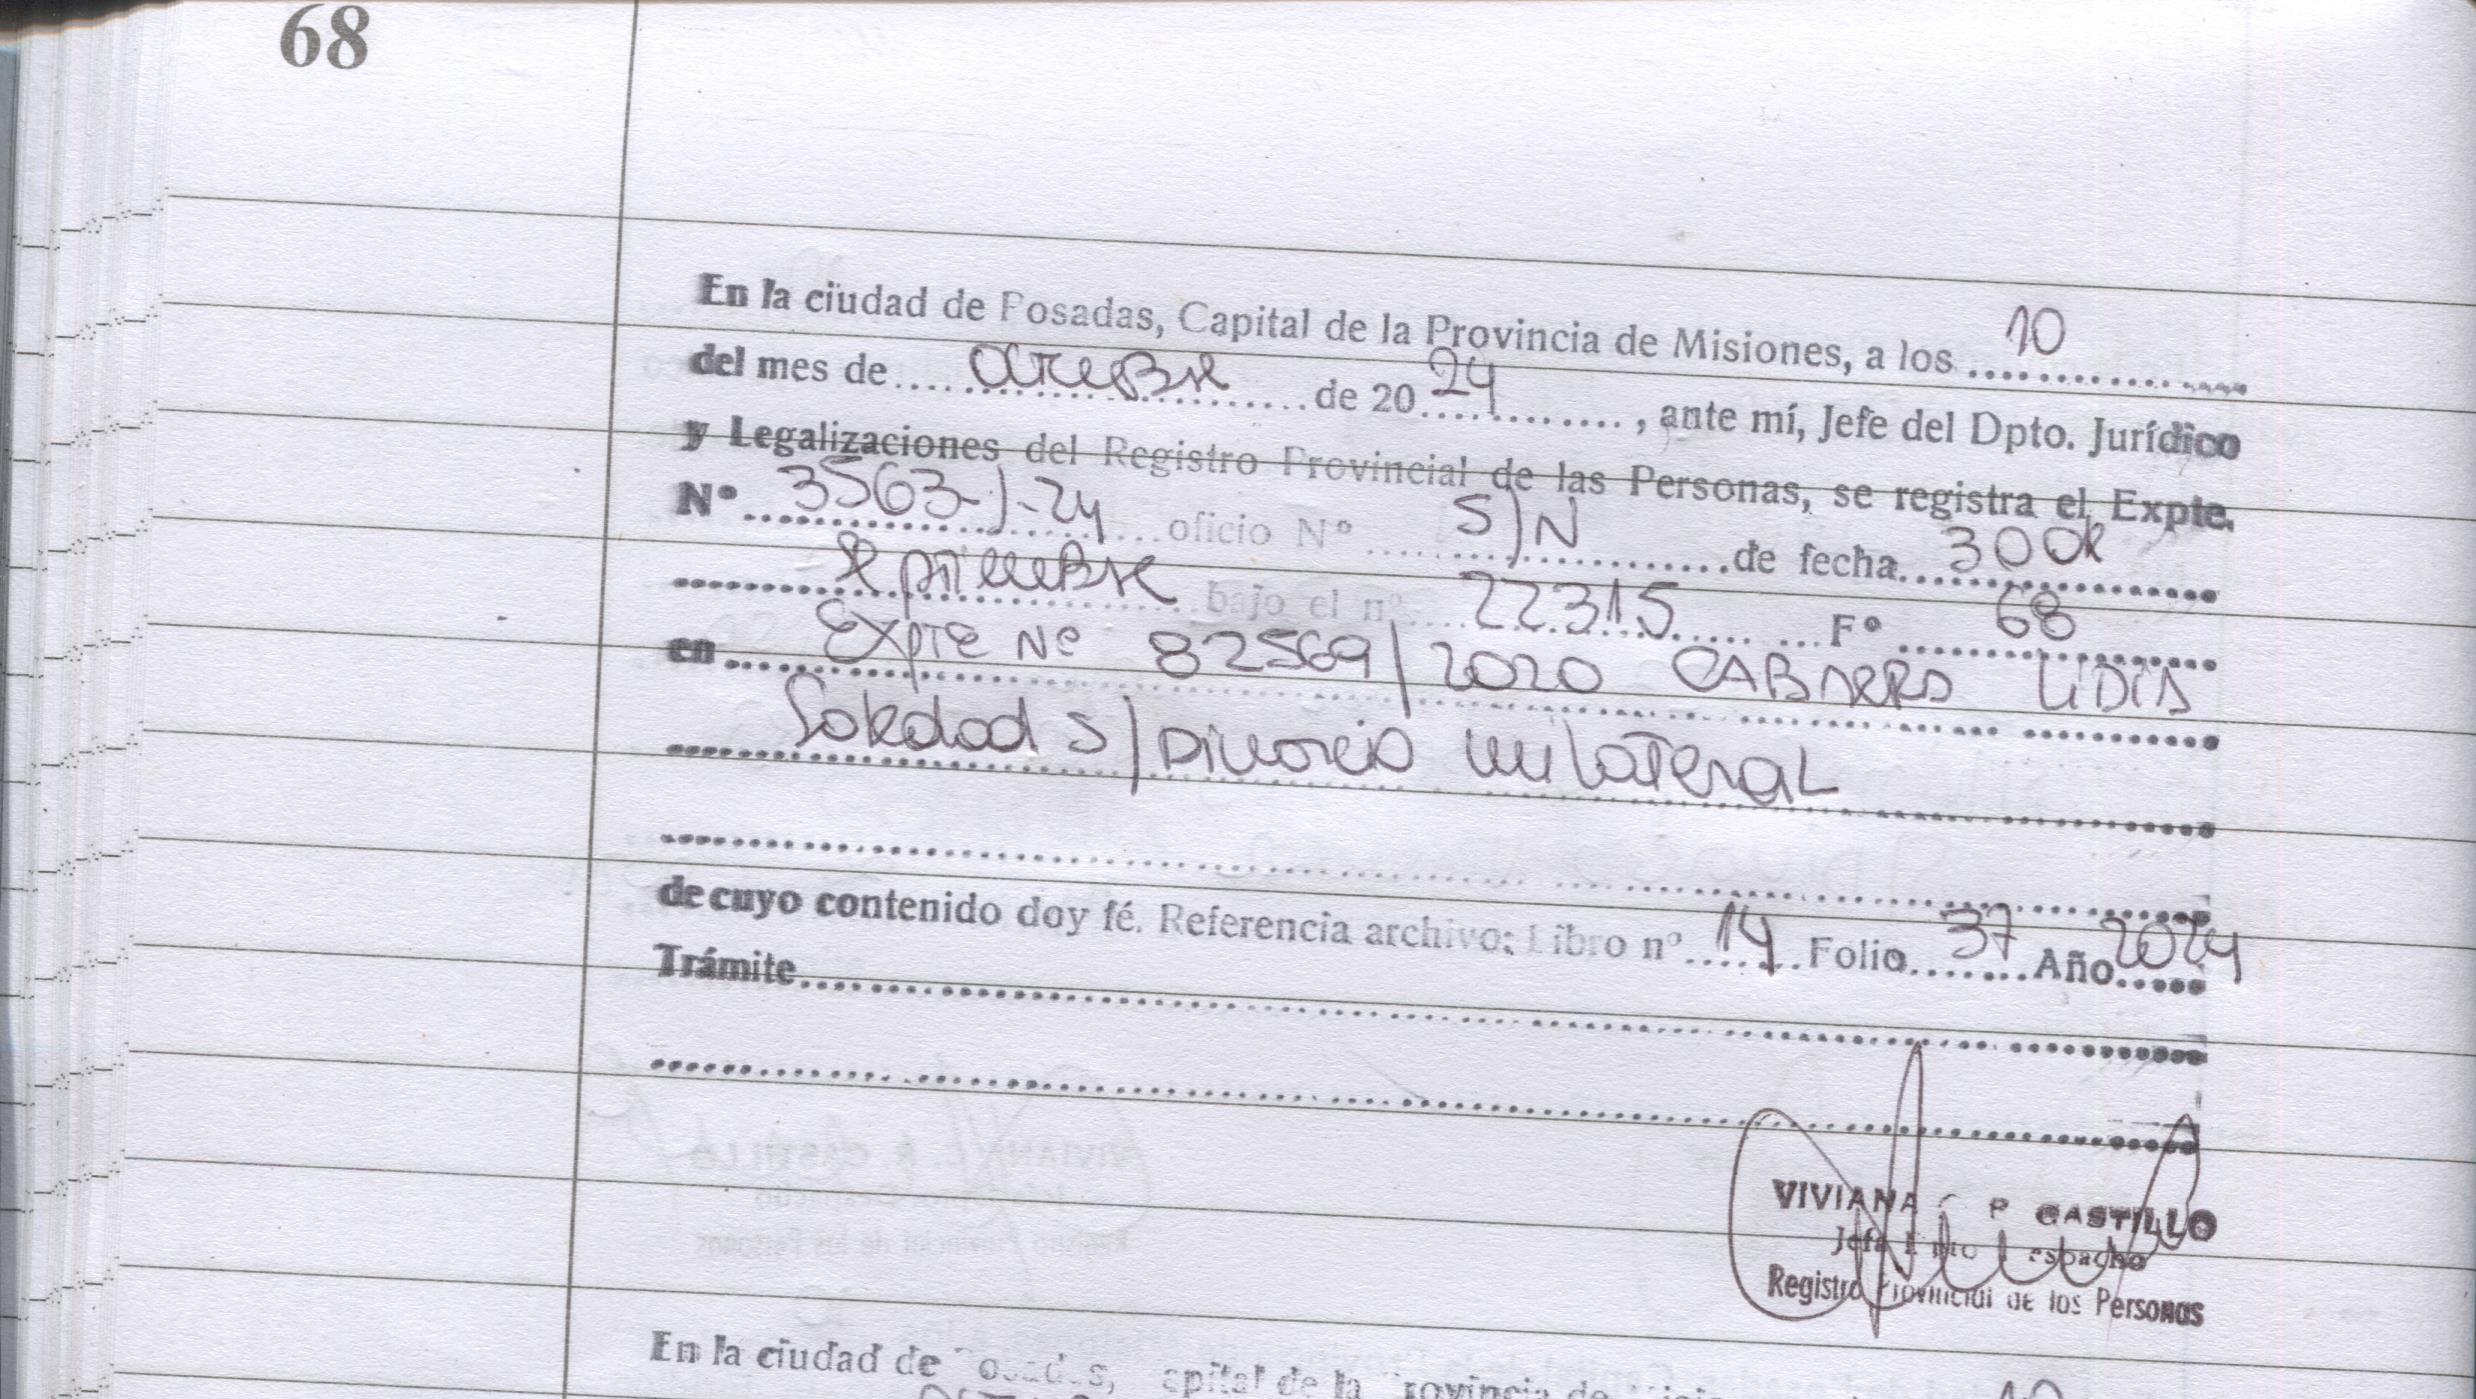 68
En la ciudad de Posadas, Capital de la Provincia de Misiones, a los 10
del mes de octubre de 2024, ante mí, Jefe del Dpto. Jurídico
y Legalizaciones del Registro Provincial de las Personas, se registra el Expte.
Nº 3563-J-24 oficio Nº S/N de fecha 30 de
septiembre bajo el nº 22315 Fº 68
en Expte Nº 82569/2020 CABRERA LIDIA
Soledad S/ Divorcio unilateral
de cuyo contenido doy fé. Referencia archivo: Libro nº 14 Folio 37 Año 2024
Trámite
VIVIANA CASTILLO
Jefa Dpto Despacho
Registro Provincial de las Personas
En la ciudad de Posadas, Capital de la Provincia de